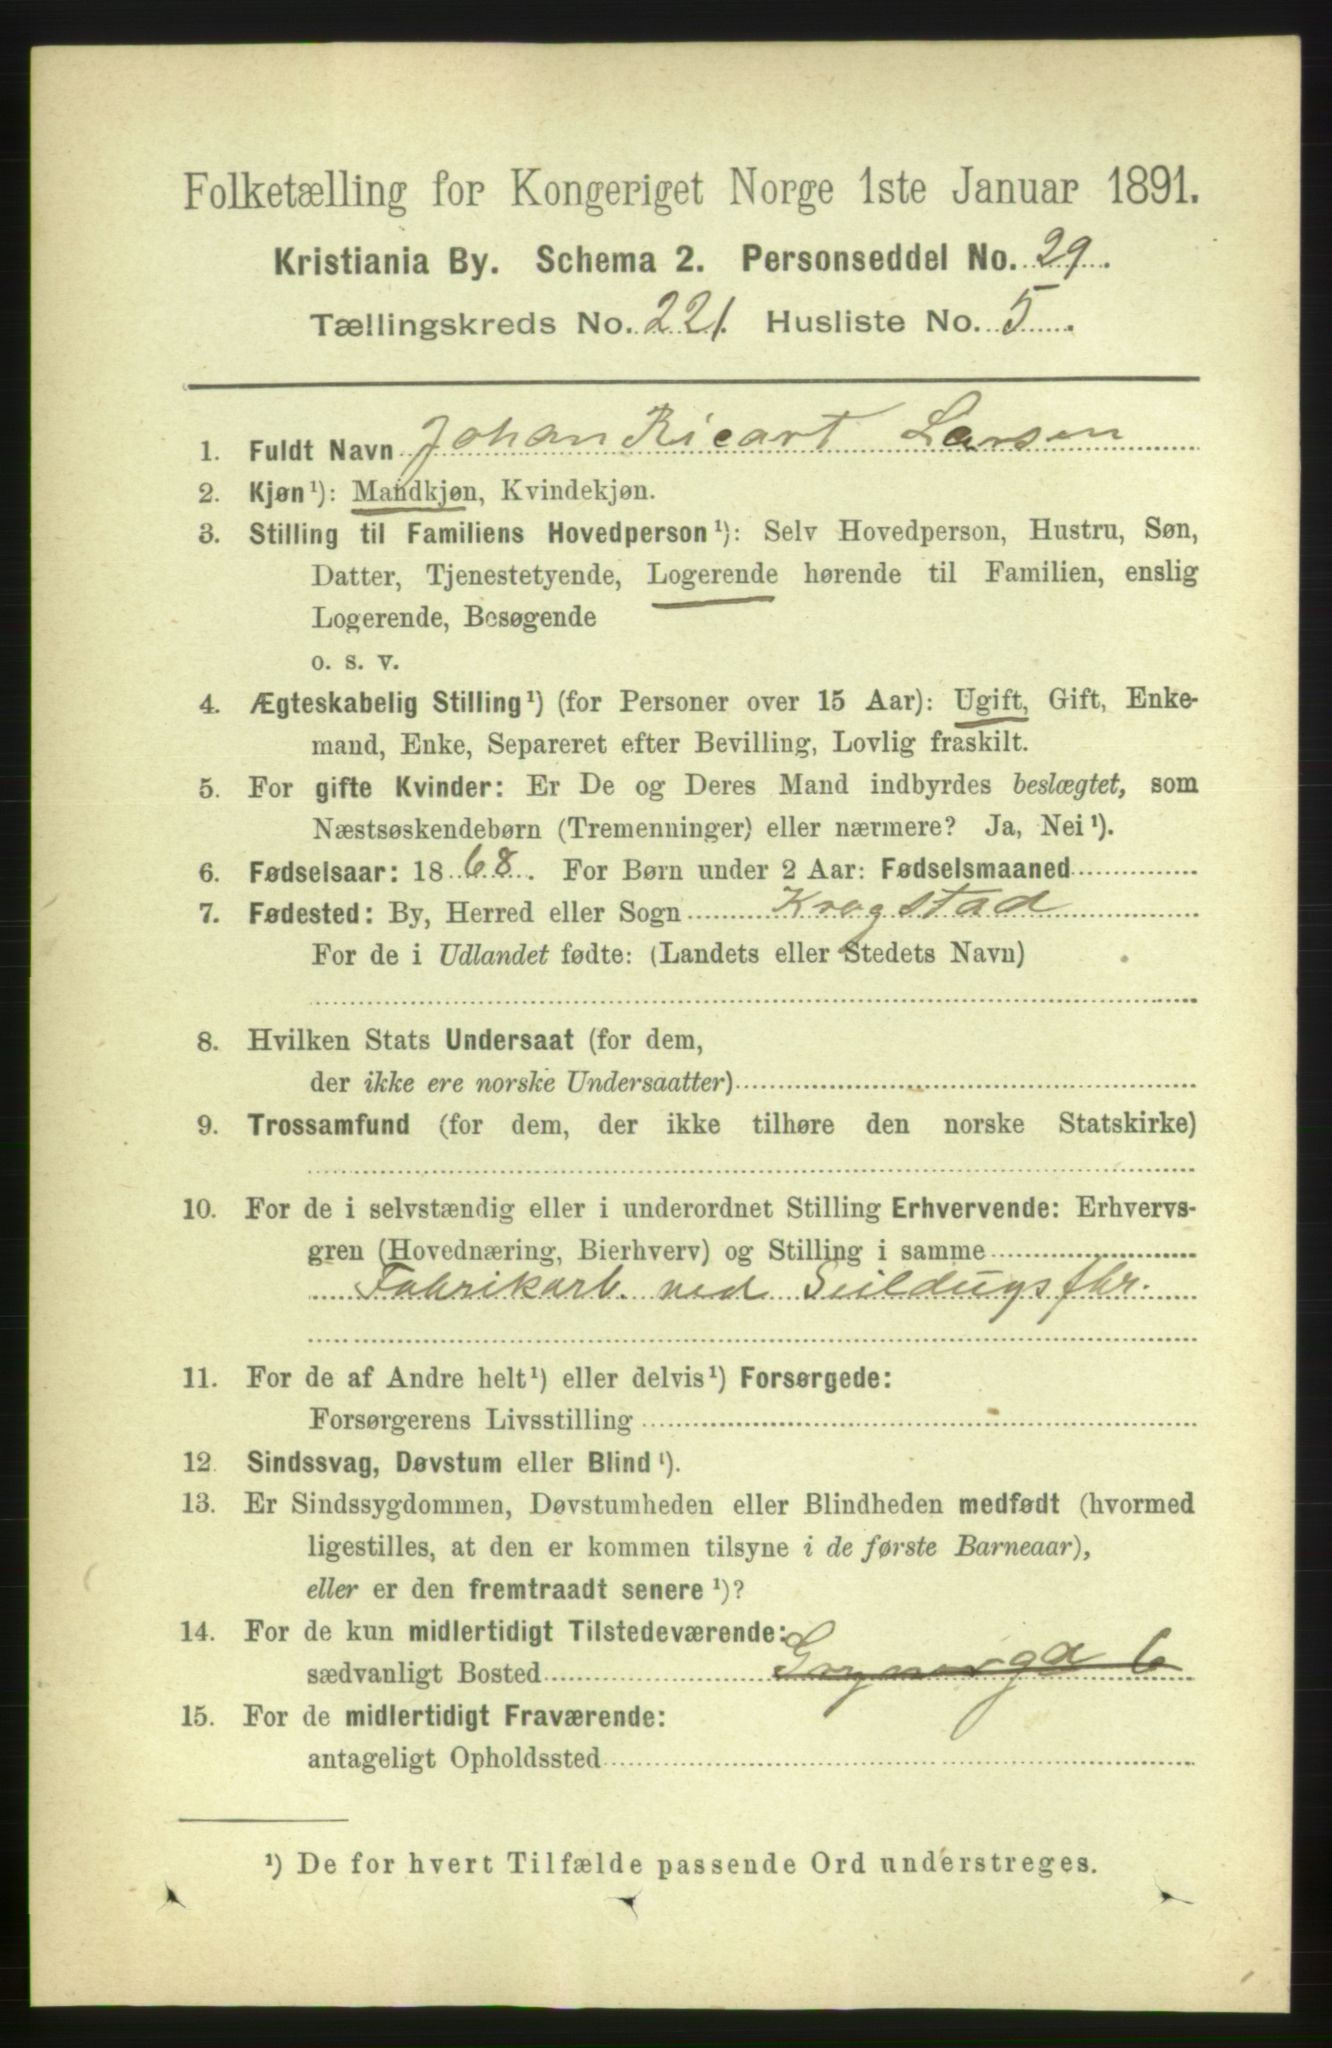 Folketælling for Kongeriget Norge 1ste Januar 1891.
Kristiania By. Schema 2. Personseddel No. 29.
Tællingskreds No. 221. Husliste No. 5.
1. Fuldt Navn Johan Ricart Larsen
2. Kjøn¹): Mandkjøn, Kvindekjøn.
3. Stilling til Familiens Hovedperson¹): Selv Hovedperson, Hustru, Søn,
Datter, Tjenestetyende, Logerende hørende til Familien, enslig
Logerende, Besøgende
o. s. v.
4. Ægteskabelig Stilling¹) (for Personer over 15 Aar): Ugift, Gift, Enke-
mand, Enke, Separeret efter Bevilling, Lovlig fraskilt.
5. For gifte Kvinder: Er De og Deres Mand indbyrdes beslægtet, som
Næstsøskendebørn (Tremenninger) eller nærmere? Ja, Nei¹).
6. Fødselsaar: 1868. For Børn under 2 Aar: Fødselsmaaned
7. Fødested: By, Herred eller Sogn Krogstad
For de i Udlandet fødte: (Landets eller Stedets Navn)
8. Hvilken Stats Undersaat (for dem,
der ikke ere norske Undersaatter)
9. Trossamfund (for dem, der ikke tilhøre den norske Statskirke)
10. For de i selvstændig eller i underordnet Stilling Erhvervende: Erhvervs-
gren (Hovednæring, Bierhverv) og Stilling i samme
Fabrikarb. ved Seildugsfbr.
11. For de af Andre helt¹) eller delvis¹) Forsørgede:
Forsørgerens Livsstilling
12. Sindssvag, Døvstum eller Blind¹).
13. Er Sindssygdommen, Døvstumheden eller Blindheden medfødt (hvormed
ligestilles, at den er kommen tilsyne i de første Barneaar),
eller er den fremtraadt senere¹)?
14. For de kun midlertidigt Tilstedeværende:
sædvanligt Bosted 6
15. For de midlertidigt Fraværende:
antageligt Opholdssted
¹) De for hvert Tilfælde passende Ord understreges.